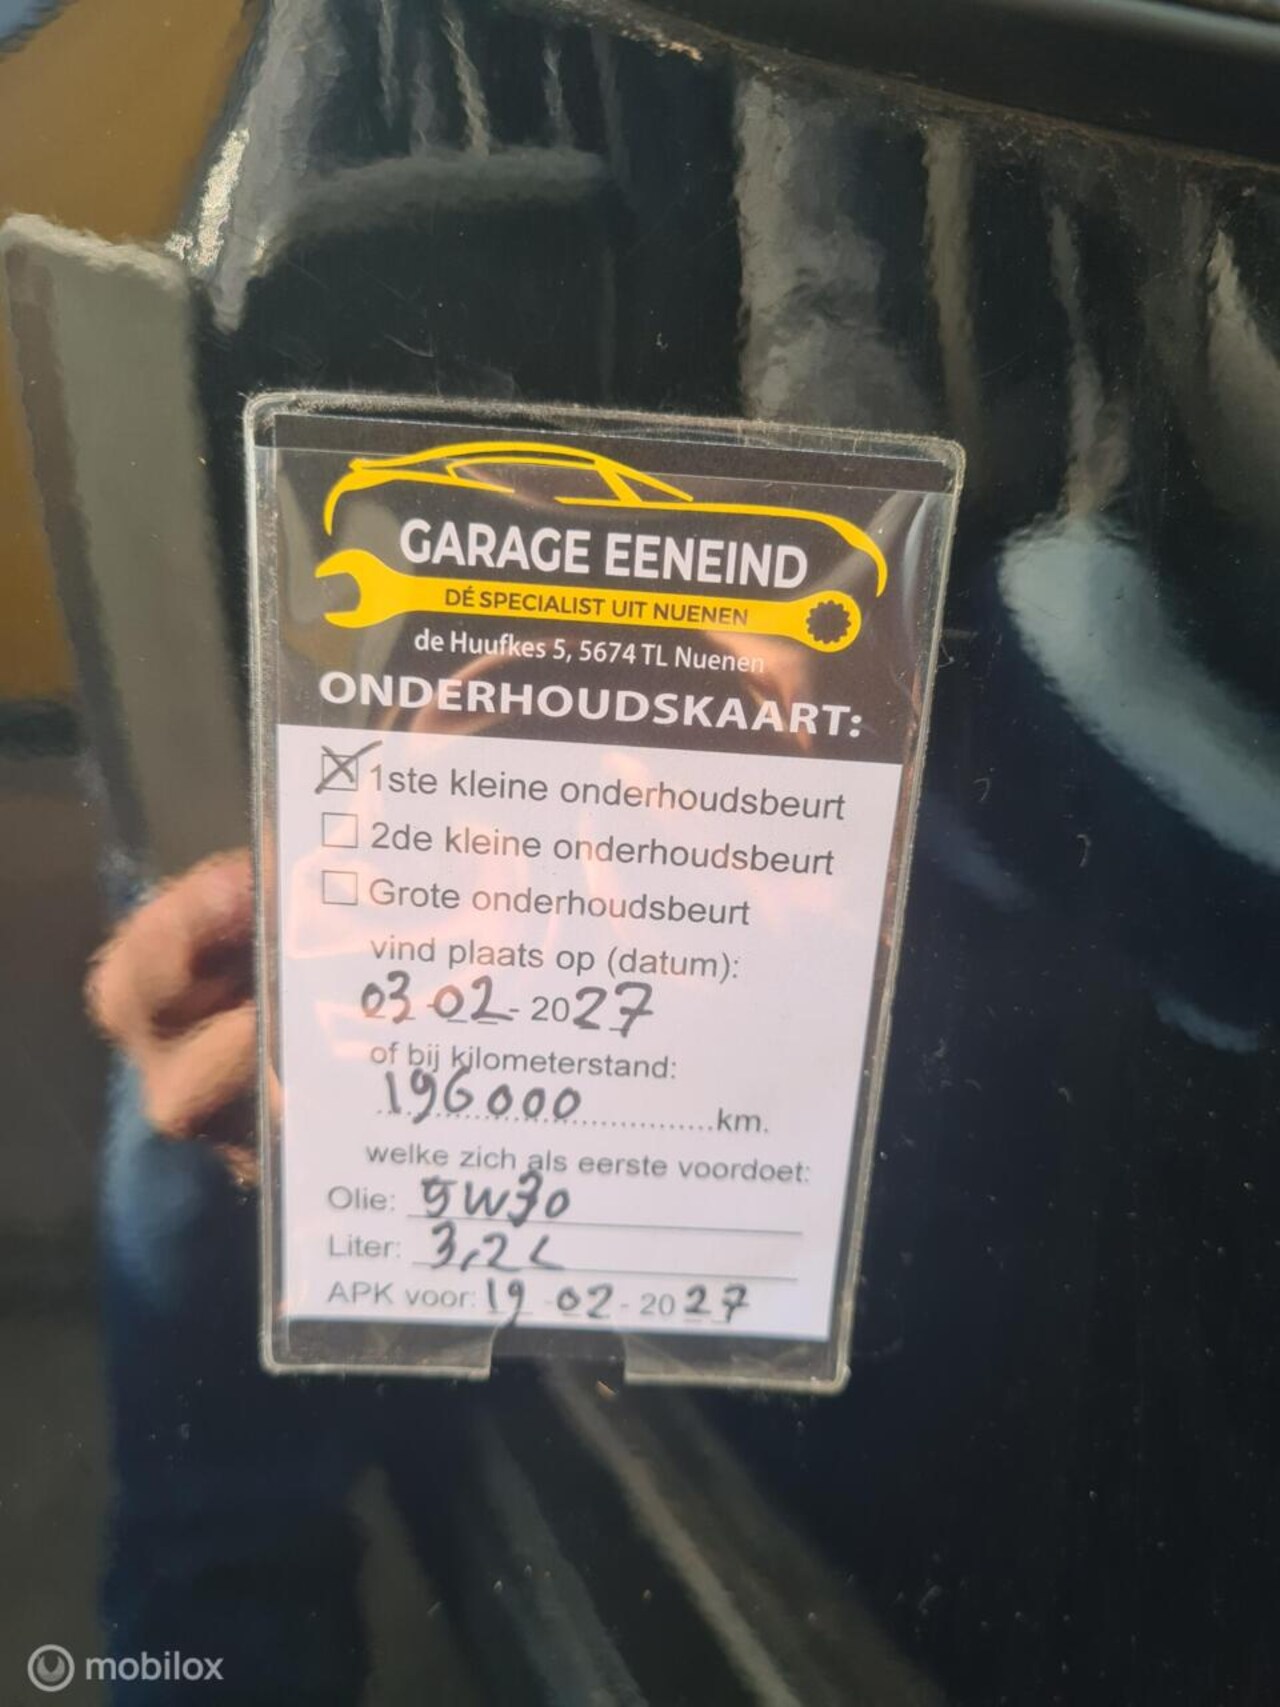 GARAGE EENEIND
DÉ SPECIALIST UIT NUENEN
de Huufkes 5, 5674 TL Nuenen
ONDERHOUDSKAART:
1ste kleine onderhoudsbeurt
2de kleine onderhoudsbeurt
Grote onderhoudsbeurt
vind plaats op (datum):
03-02-2027
of bij kilometerstand:
196000 km.
welke zich als eerste voordoet:
Olie: 5W30
Liter: 3,2L
APK voor: 19-02-2027
mobilox